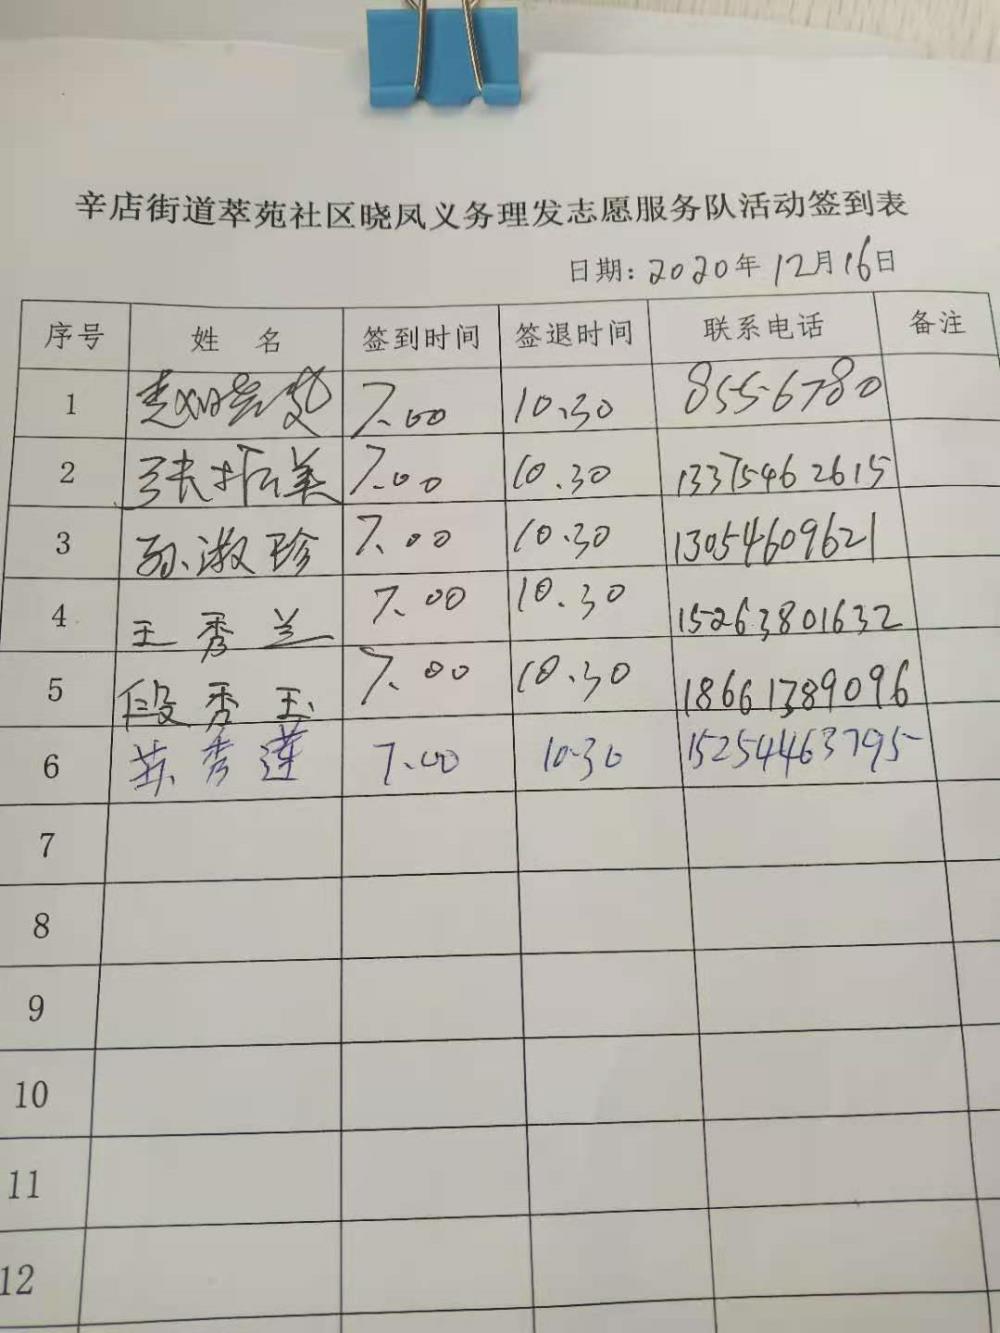 辛店街道萃苑社区晓凤义务理发志愿服务队活动签到表
日期: 2020年 12月16日
序号 姓 名 签到时间 签退时间 联系电话 备注
1 7.00 10.30 8556780
2 张 美 7.00 10.30 13375462615
3 孙淑珍 7.00 10.30 13054609621
4 王秀兰 7.00 10.30 15263801632
5 段秀玉 7.00 10.30 18661789096
6 苏秀莲 7.00 10.30 15254463795
7
8
9
10
11
12